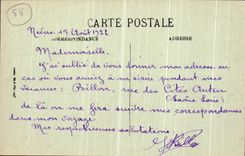 58
CARTE POSTALE
CORRESPONDANCE
ADRESSE
17 Août 1922
Mademoiselle,
J'ai oublié de vous donner mon adresse au
cas où vous auriez à m'écrire pendant mes
vacances : Billon, rue des Cités Autun
(Saône Loire)
de là on me fera suivre mes correspondances
dans mon voyage.
Mes respectueuses salutations